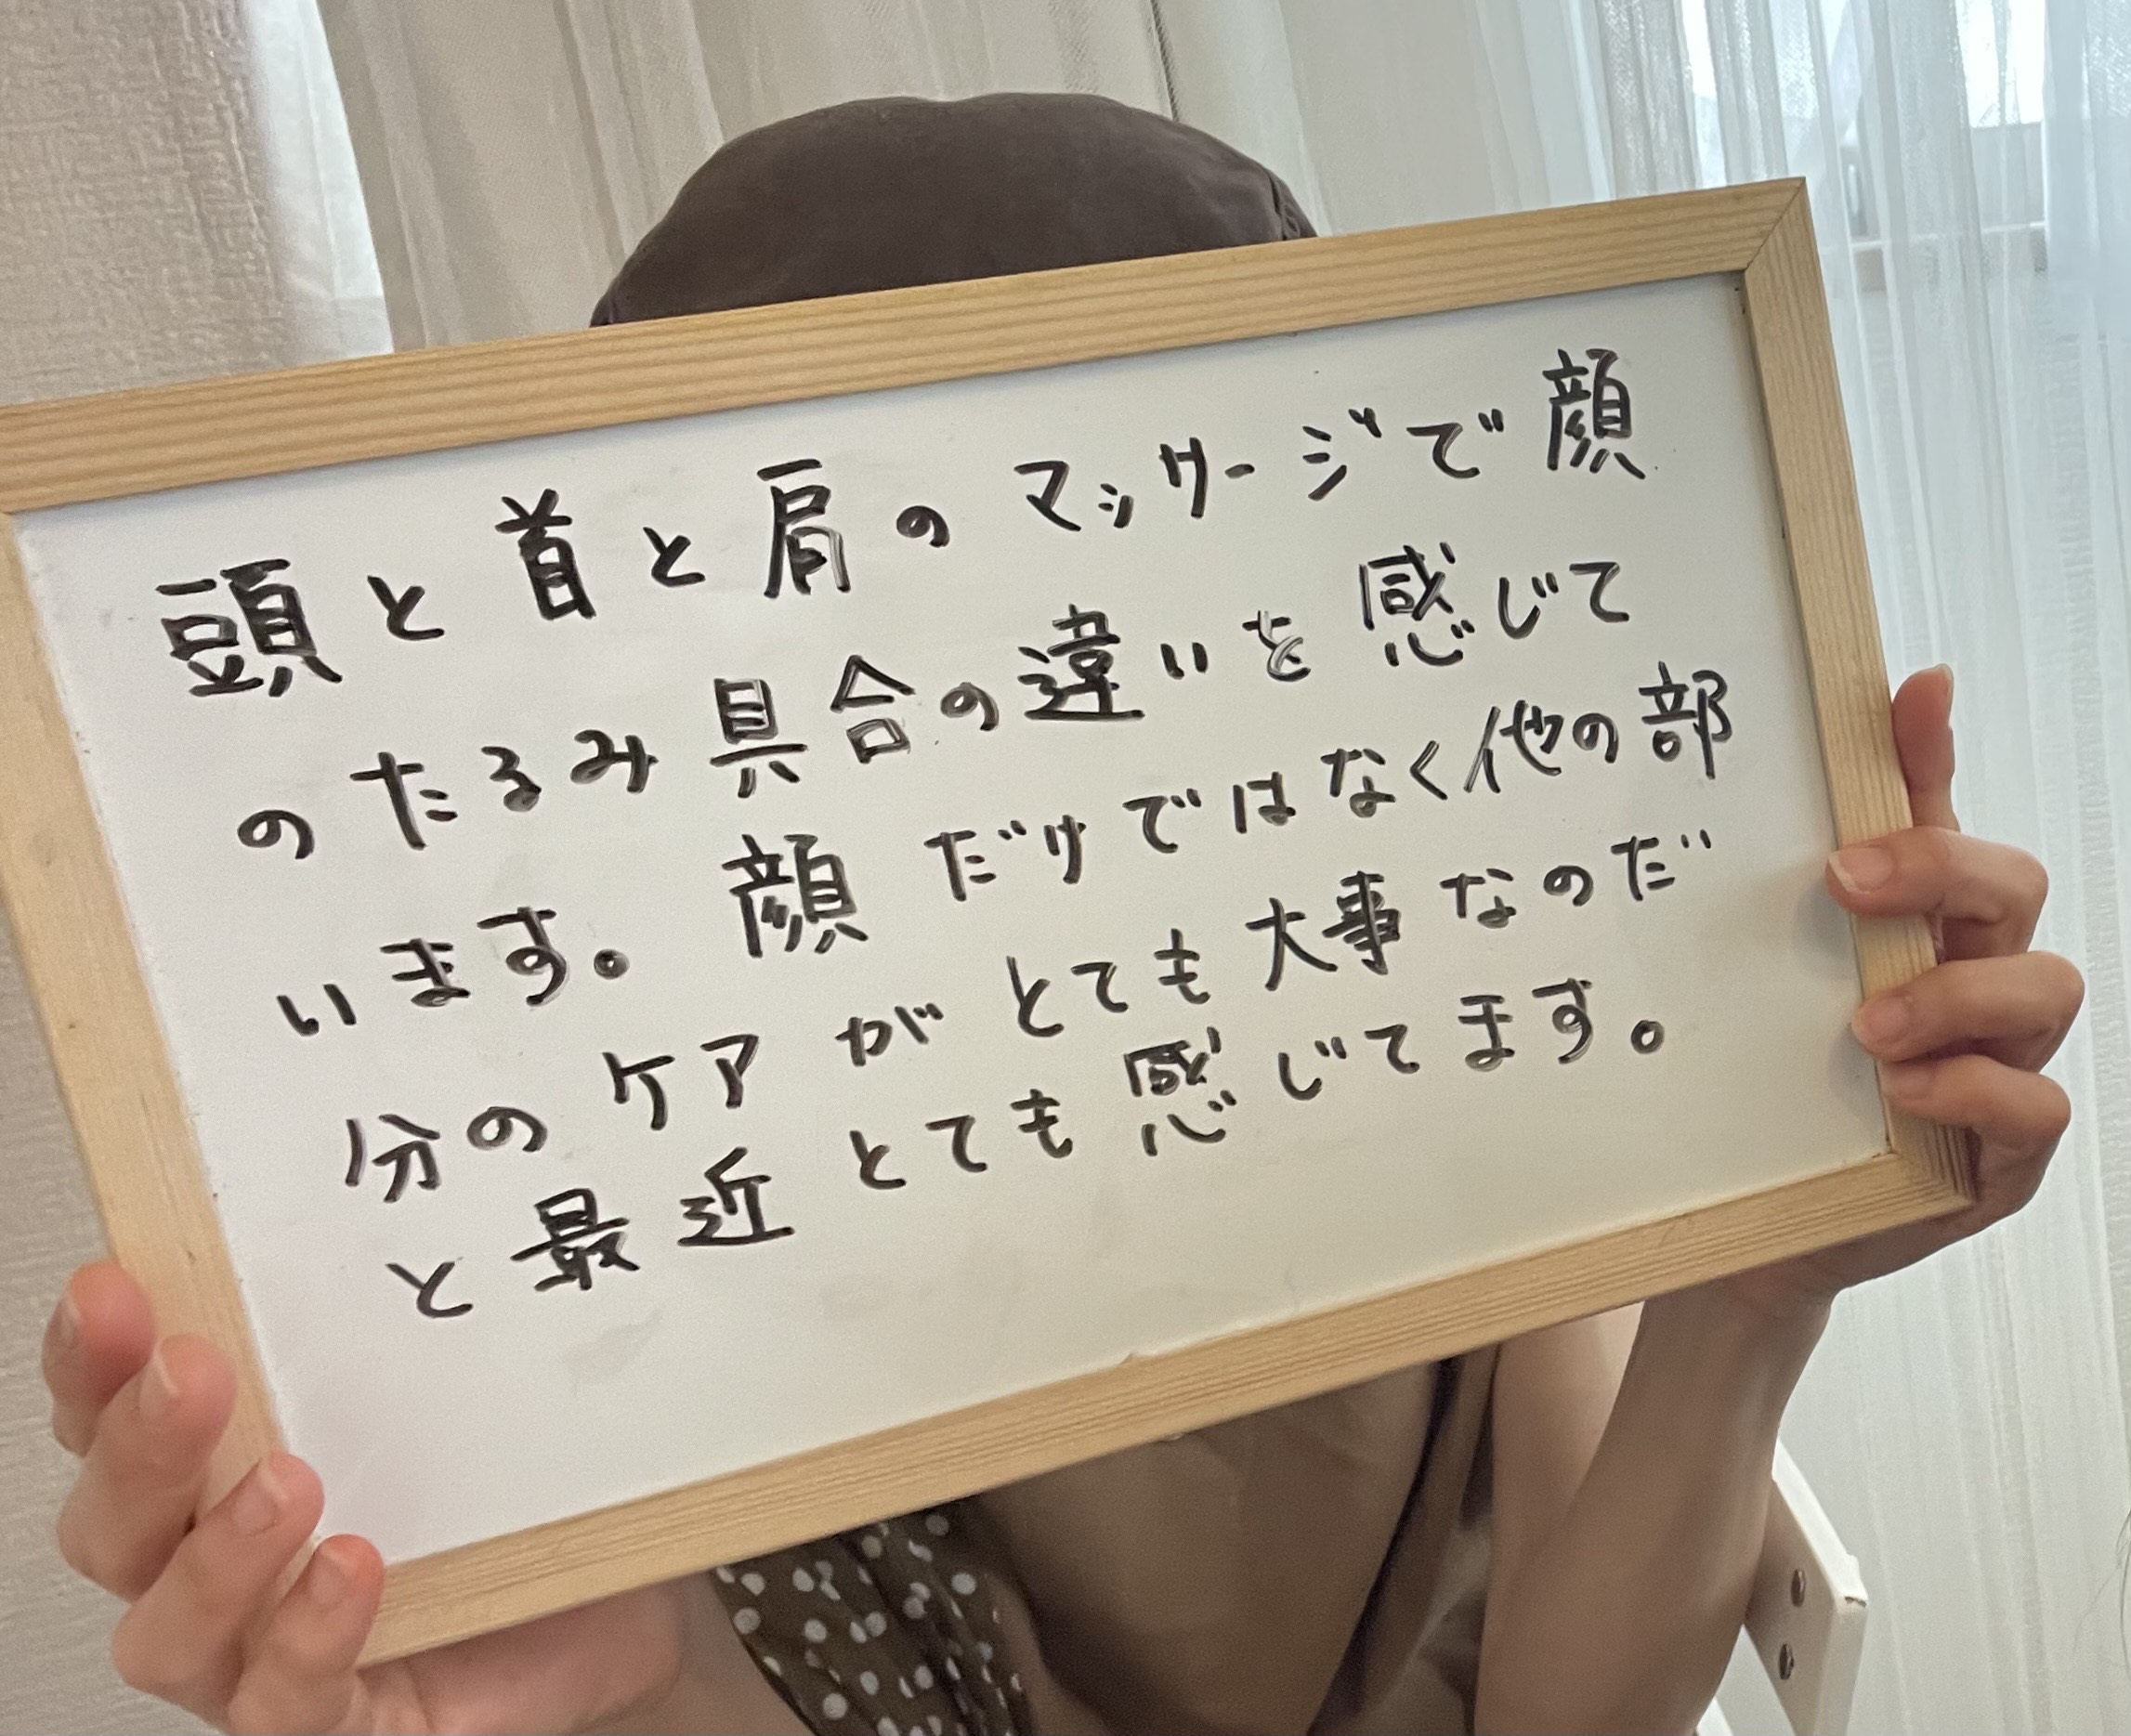 頭と首と肩のマッサージで顔
のたるみ具合の違いを感じて
います。顔だけではなく他の部
分のケアがとても大事なのだ
と最近とても感じてます。